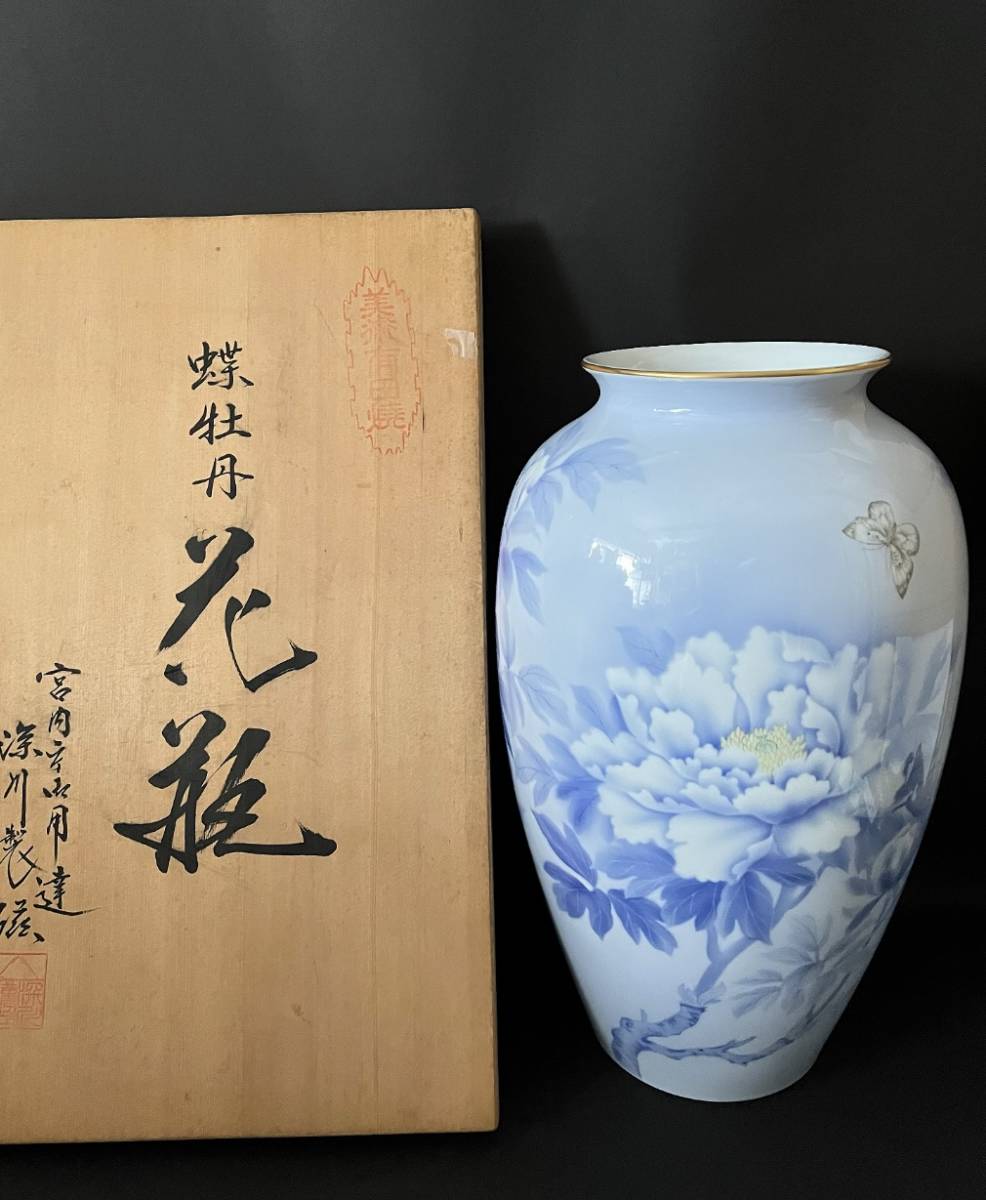 美術有田焼
蝶牡丹
花瓶
宮内庁御用達
深川製磁